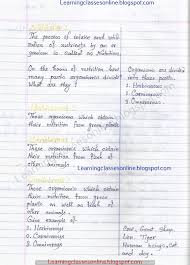 Learningclassesonline.blogspot.com
The process of intake and utili
zation of nutrients by an or
ganism is called as Nutrition.
On the basis of nutrition how
many parts organisms divided
What are they?
Organisms are divided
into three parts.
1. Herbivorous
2. Carnivorous
3. Omnivorous
Those organisms which obtain
their nutrition from green
plants.
Those organisms which obtain
their nutrition from flesh of
other animals.
Learningclassesonline.blogspot.com
Those organisms which obtain
their nutrition from green
plants as well as flesh of
other animals.
Give example of
1. Herbivorous
2. Carnivorous
3. Omnivorous
Cow, Goat, Sheep.
Lion, Tiger
Human beings, Cat
and dog.
Learningclassesonline.blogspot.com